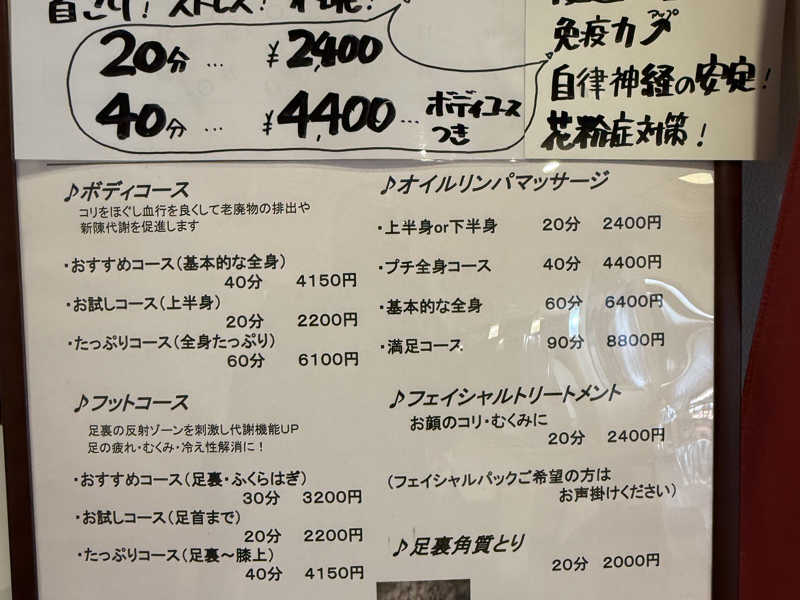 20分 … ¥2,400
40分 … ¥4,400 … ボディコースつき
免疫力アップ
自律神経の安定!
花粉症対策!
♪ボディコース
コリをほぐし血行を良くして老廃物の排出や
新陳代謝を促進します
・おすすめコース(基本的な全身)
40分 4150円
・お試しコース(上半身)
20分 2200円
・たっぷりコース(全身たっぷり)
60分 6100円
♪フットコース
足裏の反射ゾーンを刺激し代謝機能UP
足の疲れ・むくみ・冷え性解消に!
・おすすめコース(足裏・ふくらはぎ)
30分 3200円
・お試しコース(足首まで)
20分 2200円
・たっぷりコース(足裏～膝上)
40分 4150円
♪オイルリンパマッサージ
・上半身or下半身 20分 2400円
・プチ全身コース 40分 4400円
・基本的な全身 60分 6400円
・満足コース 90分 8800円
♪フェイシャルトリートメント
お顔のコリ・むくみに
20分 2400円
(フェイシャルパックご希望の方は
お声掛けください)
♪足裏角質とり
20分 2000円